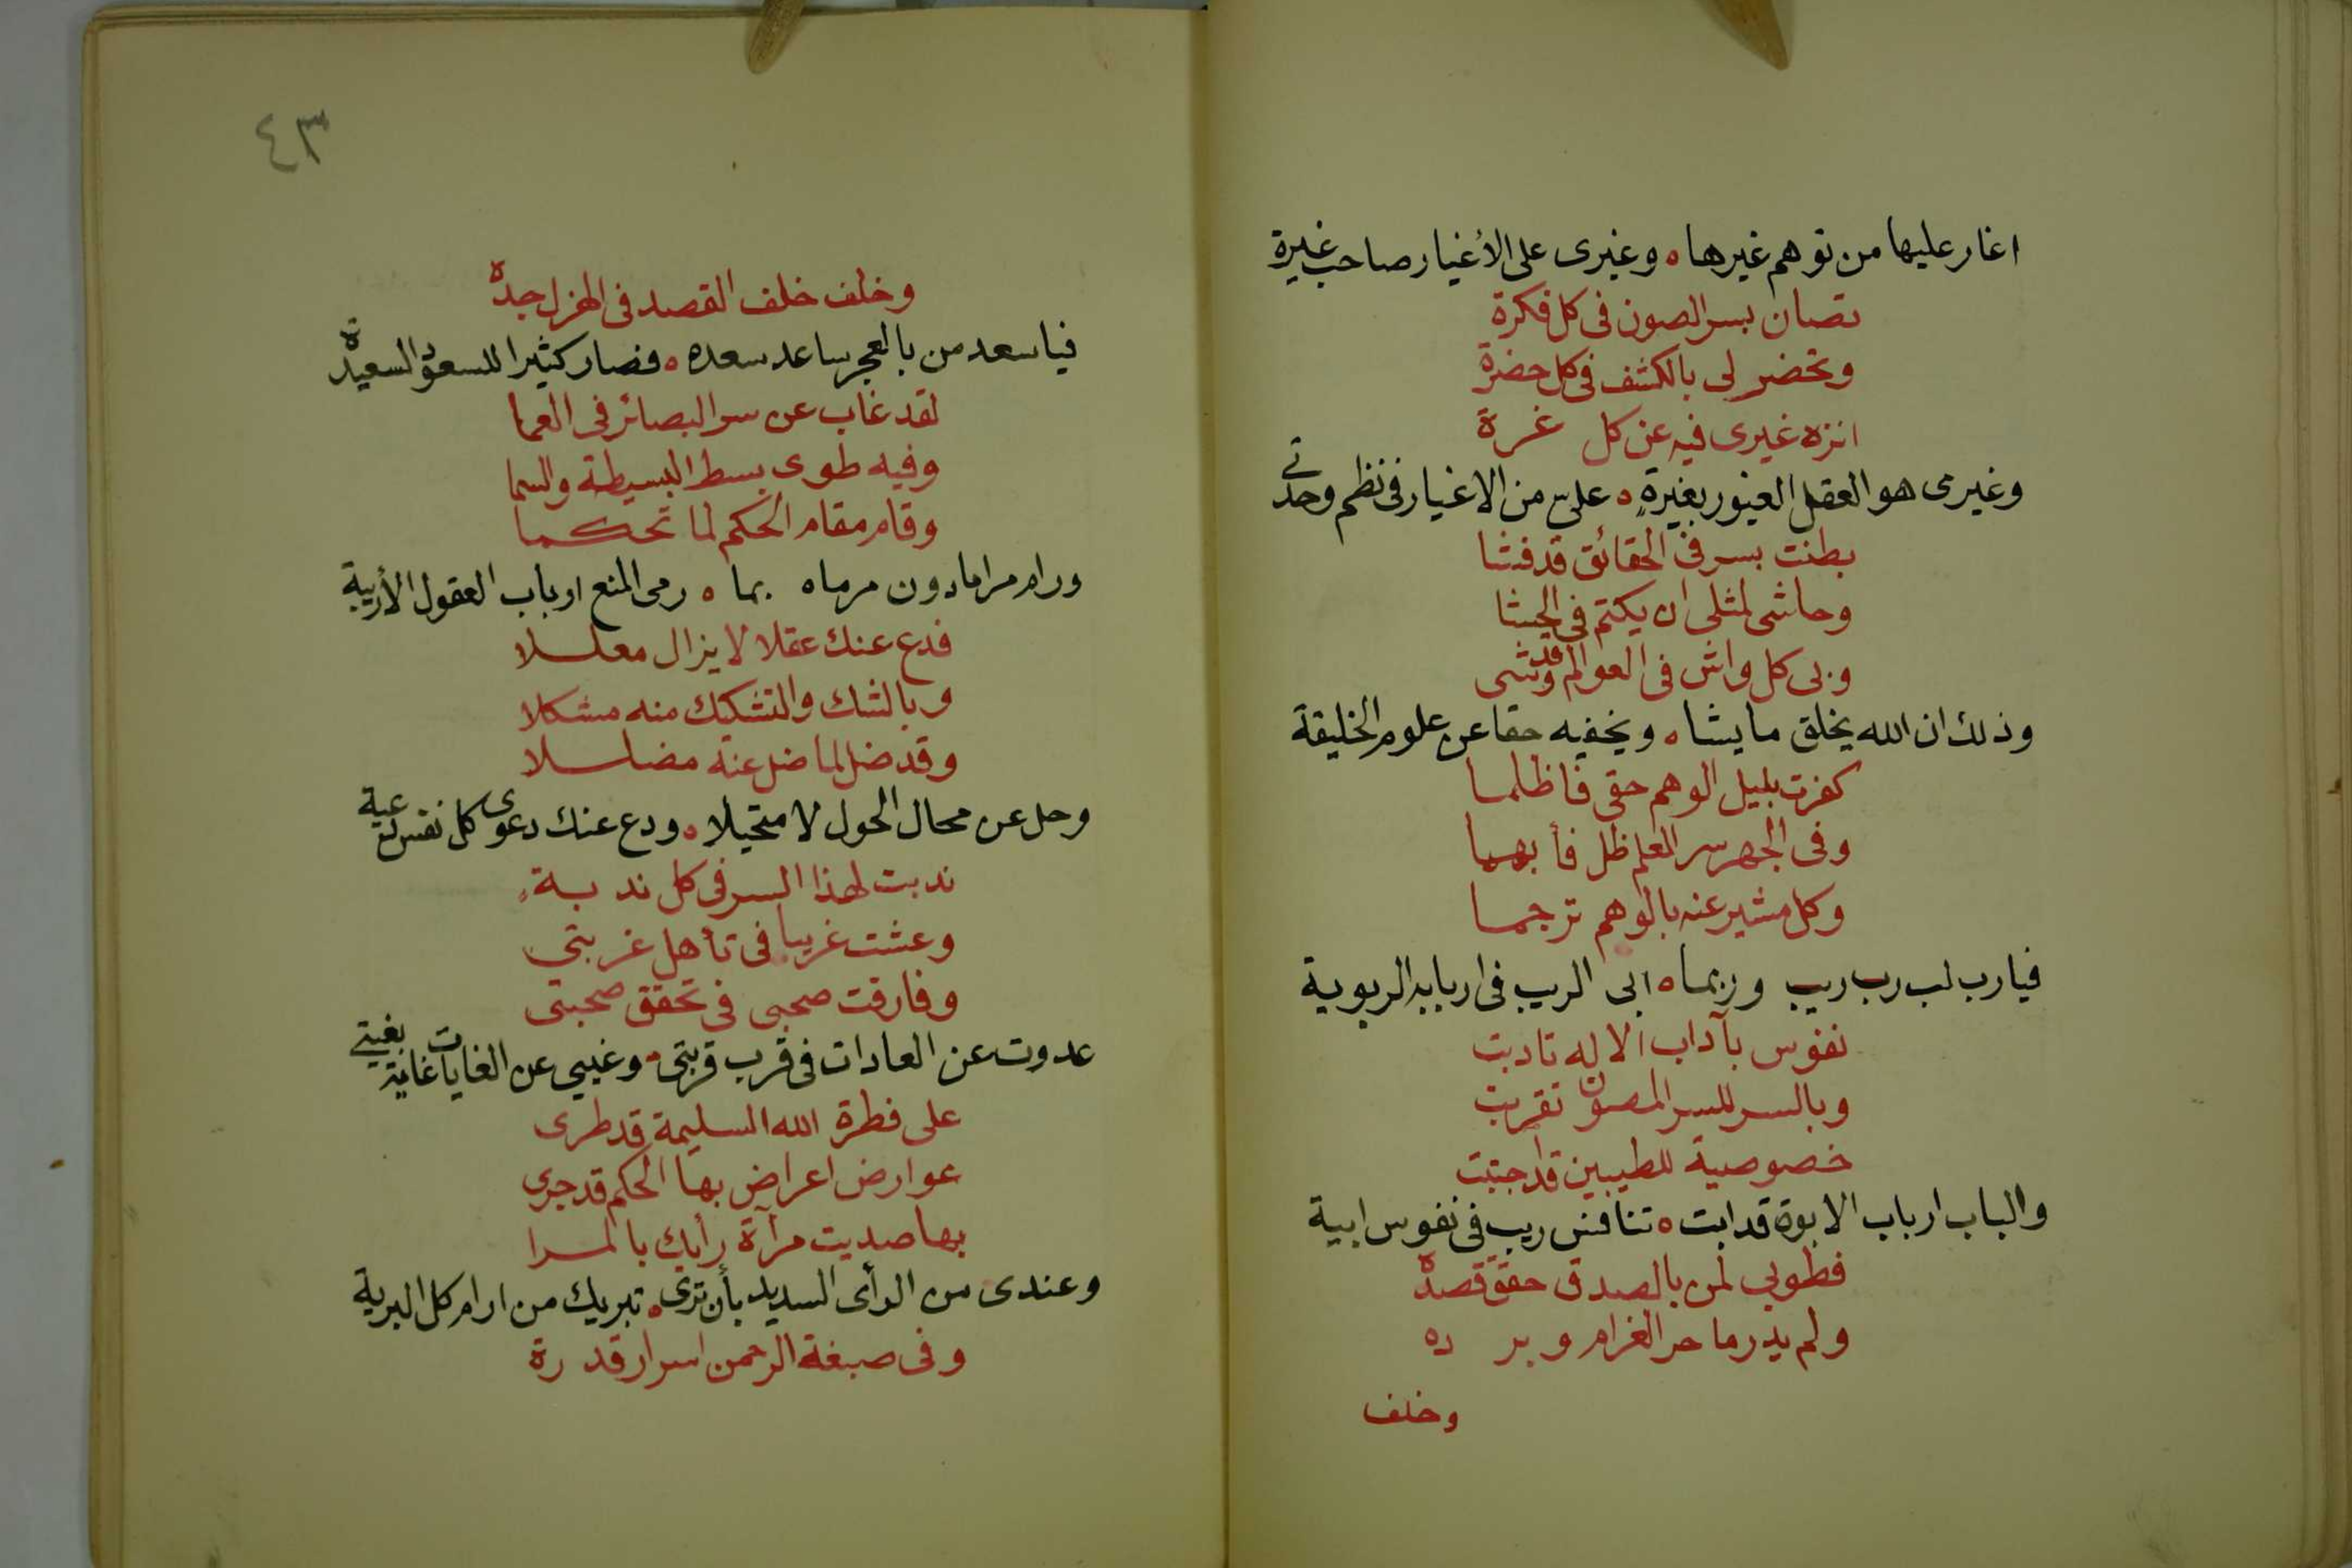 اغار عليها من توهم غيرها ه وغيرى على الأغيار صاحب غيرة
تصان بسر الصون فى كل فكرة
وتحضر لى بالكشف فى كل حضرة
انزه غيرى فيه عن كل غرة
وغيرمى هو العقل الغيور بغيرةٍ ه على من الاغيار فى نظم وحدتى
بطنت بسر فى الحقائق قد فشا
وحاشى لمثلى ان يكتم فى الحشا
وبى كل واش فى العوالم قد وشى
وذلك ان الله يخلق ما يشا ه ويخفيه حقا عن علوم الخليقة
كفرت بليل الوهم حقى فاظلما
وفى الجهر سر العلم ظل فأبهما
وكل مشير عنه بالوهم ترجما
فيارب لب رب ريب وربما ه ابى الريب فى اربابه الربوبية
نفوس بآداب الاله تادبت
وبالسر للسر المصون تقربت
خصوصية للطيبين قد اجتبت
والباب ارباب الابوة قد ابت ه تنافس ريب فى نفوس ابية
فطوبى لمن بالصدق حقق قصده
ولم يدر ما حر الغرام وبرده
وخلف
٤٣
وخلف خلف القصد فى الهزل جده
فيا سعد من بالعجر ساعد سعده ه فصار كثيرا للسعود السعيدة
لقد غاب عن سر البصائر فى العما
وفيه طوى بسط البسيطة والسما
وقام مقام الحكم لما تحكما
ورام مراما دون مرماه بما ه رمى المنع ارباب العقول الأربية
فدع عنك عقلا لا يزال معللا
وبالشك والتشكيك منه مشكلا
وقد ضل لما ضل عنه مضللا
وحل عن محال الحول لا متحيلا ه ودع عنك دعوى كل نفس دعية
ندبت لهذا السر فى كل ندبةٍ
وعشت غريبا فى تأهل غربتى
وفارقت صحبى فى تحقق صحبتى
عدوت عن العادات فى قرب قربتى ه وغيبى عن الغايات غاية بغيتى
على فطرة الله السليمة قد طرى
عوارض اعراض بها الحكم قد جرى
بها صديت مرآة رأيك بالمرا
وعندى من الرأى السديد بأن ترى ه تبريك من ارام كل البرية
وفى صبغة الرحمن اسرار قدرة